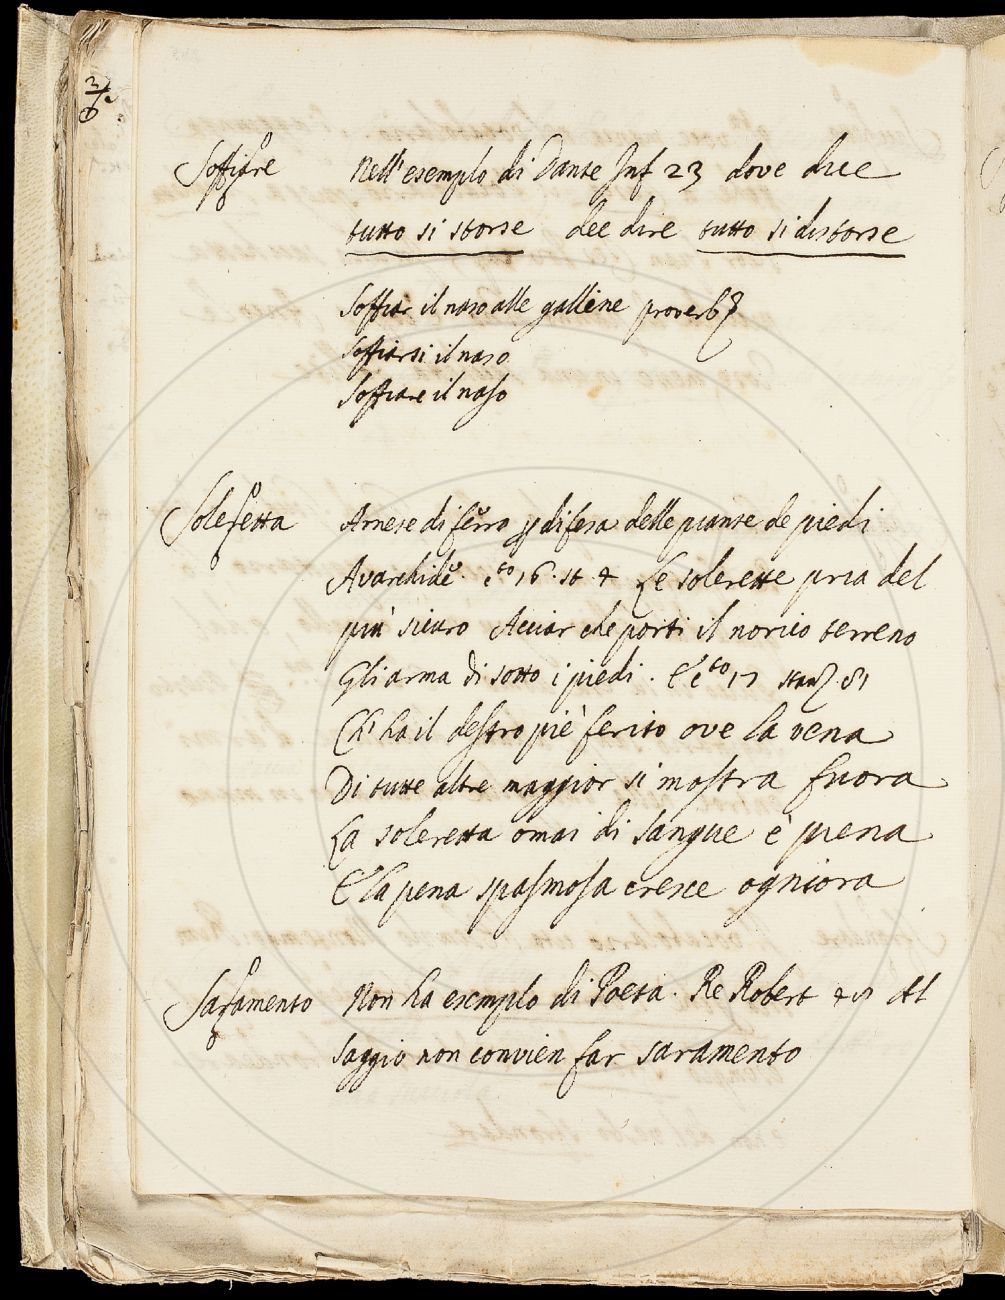 Soffiare Nell'esemplo di Dante Inf 23 dove dice
tutto si storse dee dire tutto si distorse
Soffiar il naso alle galline proverb
Soffiarsi il naso
Soffiare il naso
Soleretta Arnese di ferro p difesa delle piante de piedi
Avarchide. Cto 16. st 4 Le solerette pria del
più sicuro Acciar che porti il norico terreno
Gli arma di sotto i piedi. E cto 17 stanz. 81
Ch' ha il destro piè ferito ove la vena
Di tutte altre maggior si mostra fuora
La soleretta omai di sangue è piena
E la pena spasmosa cresce ogniora
Saramento Non ha esemplo di Poeta. Re Robert Al
saggio non convien far saramento